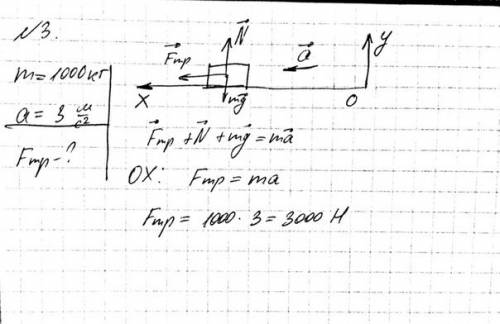 №3.
m = 1000 кг
a = 3 м/с²
Fтр - ?
N⃗
F⃗тр
a⃗
y
mg⃗
X
O
F⃗тр + N⃗ + mg⃗ = ma⃗
OX: Fтр = ma
Fтр = 1000 · 3 = 3000 Н